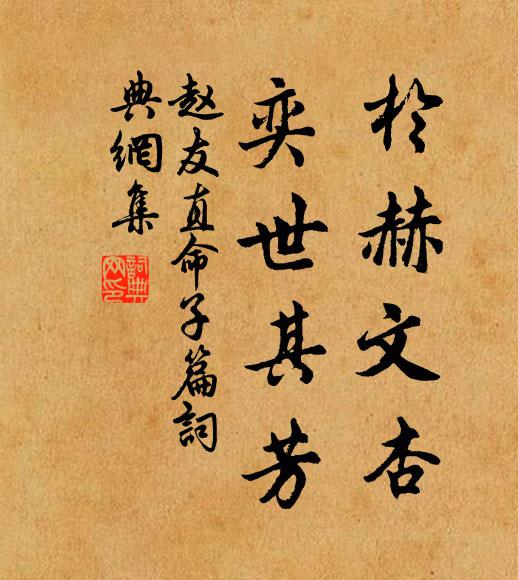 於赫文杏
奕世其芳
赵友直命子篇詞
典網集
詞典網印